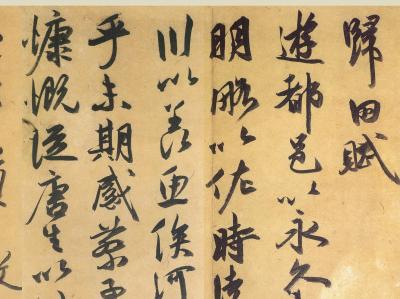 歸田賦
遊都邑以永久
明略以佐時
川以羨魚俟河
乎未期感蔡子
慷慨從唐生以